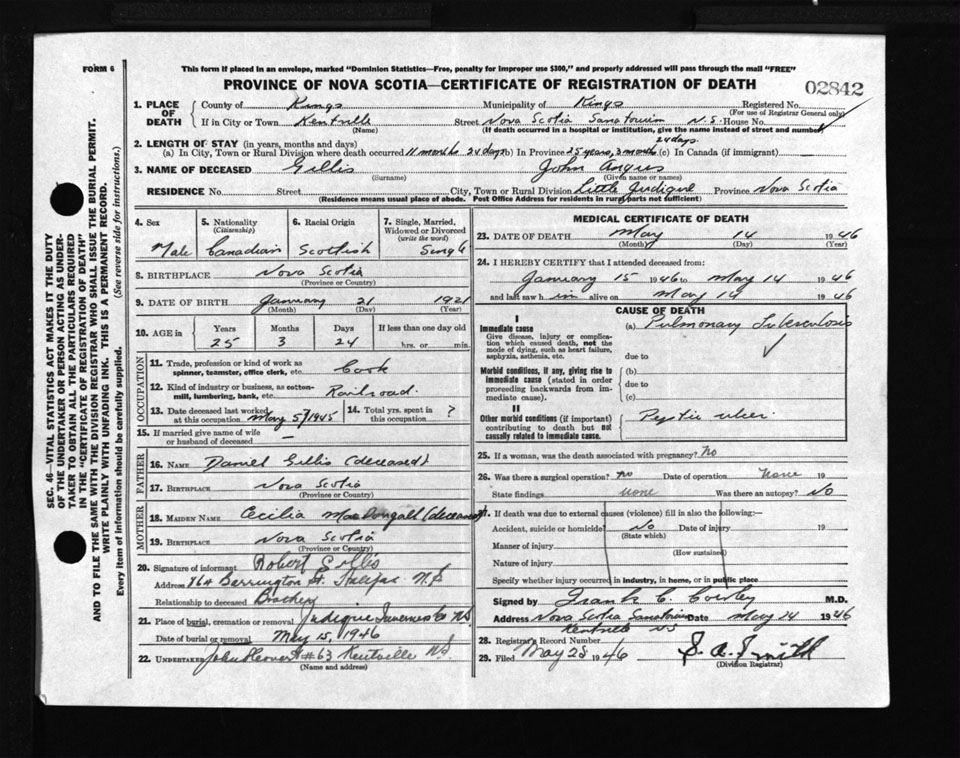 FORM 6
This form if placed in an envelope, marked "Dominion Statistics—Free, penalty for improper use $300," and properly addressed will pass through the mail "FREE"
PROVINCE OF NOVA SCOTIA—CERTIFICATE OF REGISTRATION OF DEATH
02842
1. PLACE OF DEATH
County of Kings Municipality of Kings Registered No.
(For use of Registrar General only)
If in City or Town Kentville Street Nova Scotia Sanatorium N.S. House No.
(Name) (If death occurred in a hospital or institution, give the name instead of street and number)
2. LENGTH OF STAY (in years, months and days)
(a) In City, Town or Rural Division where death occurred 11 months 24 days (b) In Province 25 years, 3 months 24 days (c) In Canada (if immigrant)
3. NAME OF DECEASED Gillis John Angus
(Surname) (Given name or names)
RESIDENCE No. Street City, Town or Rural Division Little Judique Province Nova Scotia
(Residence means usual place of abode. Post Office Address for residents in rural parts not sufficient)
4. Sex
Male
5. Nationality
(Citizenship)
Canadian
6. Racial Origin
Scottish
7. Single, Married, Widowed or Divorced
(write the word)
Single
8. BIRTHPLACE Nova Scotia
(Province or Country)
9. DATE OF BIRTH January 21 1921
(Month) (Day) (Year)
10. AGE in Years Months Days If less than one day old
25 3 24 hrs. or min.
OCCUPATION
11. Trade, profession or kind of work as spinner, teamster, office clerk, etc. Cook
12. Kind of industry or business, as cotton-mill, lumbering, bank, etc. Railroad.
13. Date deceased last worked at this occupation May 5/1945
14. Total yrs. spent in this occupation ?
15. If married give name of wife or husband of deceased —
FATHER
16. NAME Daniel Gillis (deceased)
17. BIRTHPLACE Nova Scotia
(Province or Country)
MOTHER
18. MAIDEN NAME Cecilia MacDougall (deceased)
19. BIRTHPLACE Nova Scotia
(Province or Country)
20. Signature of informant Robert Gillis
Address Barrington St. Halifax N.S
Relationship to deceased Brother
21. Place of burial, cremation or removal Judique Inverness Co NS
Date of burial or removal May 15, 1946
22. UNDERTAKER John #63 Kentville N.S.
(Name and address)
MEDICAL CERTIFICATE OF DEATH
23. DATE OF DEATH May 14 1946
(Month) (Day) (Year)
24. I HEREBY CERTIFY that I attended deceased from:
January 15 1946 to May 14 1946
and last saw h im alive on May 14 1946
CAUSE OF DEATH
I
Immediate cause
Give disease, injury or complication which caused death, not the mode of dying, such as heart failure, asphyxia, asthenia, etc.
(a) Pulmonary Tuberculosis
due to
Morbid conditions, if any, giving rise to immediate cause (stated in order proceeding backwards from immediate cause).
(b)
due to
(c)
II
Other morbid conditions (if important) contributing to death but not causally related to immediate cause.
Peptic ulcer.
25. If a woman, was the death associated with pregnancy? No
26. Was there a surgical operation? no Date of operation None 19
State findings none Was there an autopsy? No
27. If death was due to external causes (violence) fill in also the following:—
Accident, suicide or homicide? No Date of injury 19
(State which)
Manner of injury
(How sustained)
Nature of injury
Specify whether injury occurred in industry, in home, or in public place
Signed by Frank C. M.D.
Address Nova Scotia Sanatorium Date May 14 1946
Kentville NS
28. Registrar's Record Number
29. Filed May 28 1946 S. A. Smith
(Division Registrar)
SEC. 46—VITAL STATISTICS ACT MAKES IT THE DUTY
OF THE UNDERTAKER OR PERSON ACTING AS UNDER-
TAKER TO OBTAIN ALL THE PARTICULARS REQUIRED
IN THE "CERTIFICATE OF REGISTRATION OF DEATH"
AND TO FILE THE SAME WITH THE DIVISION REGISTRAR WHO SHALL ISSUE THE BURIAL PERMIT.
WRITE PLAINLY WITH UNFADING INK. THIS IS A PERMANENT RECORD.
Every item of information should be carefully supplied. (See reverse side for instructions.)